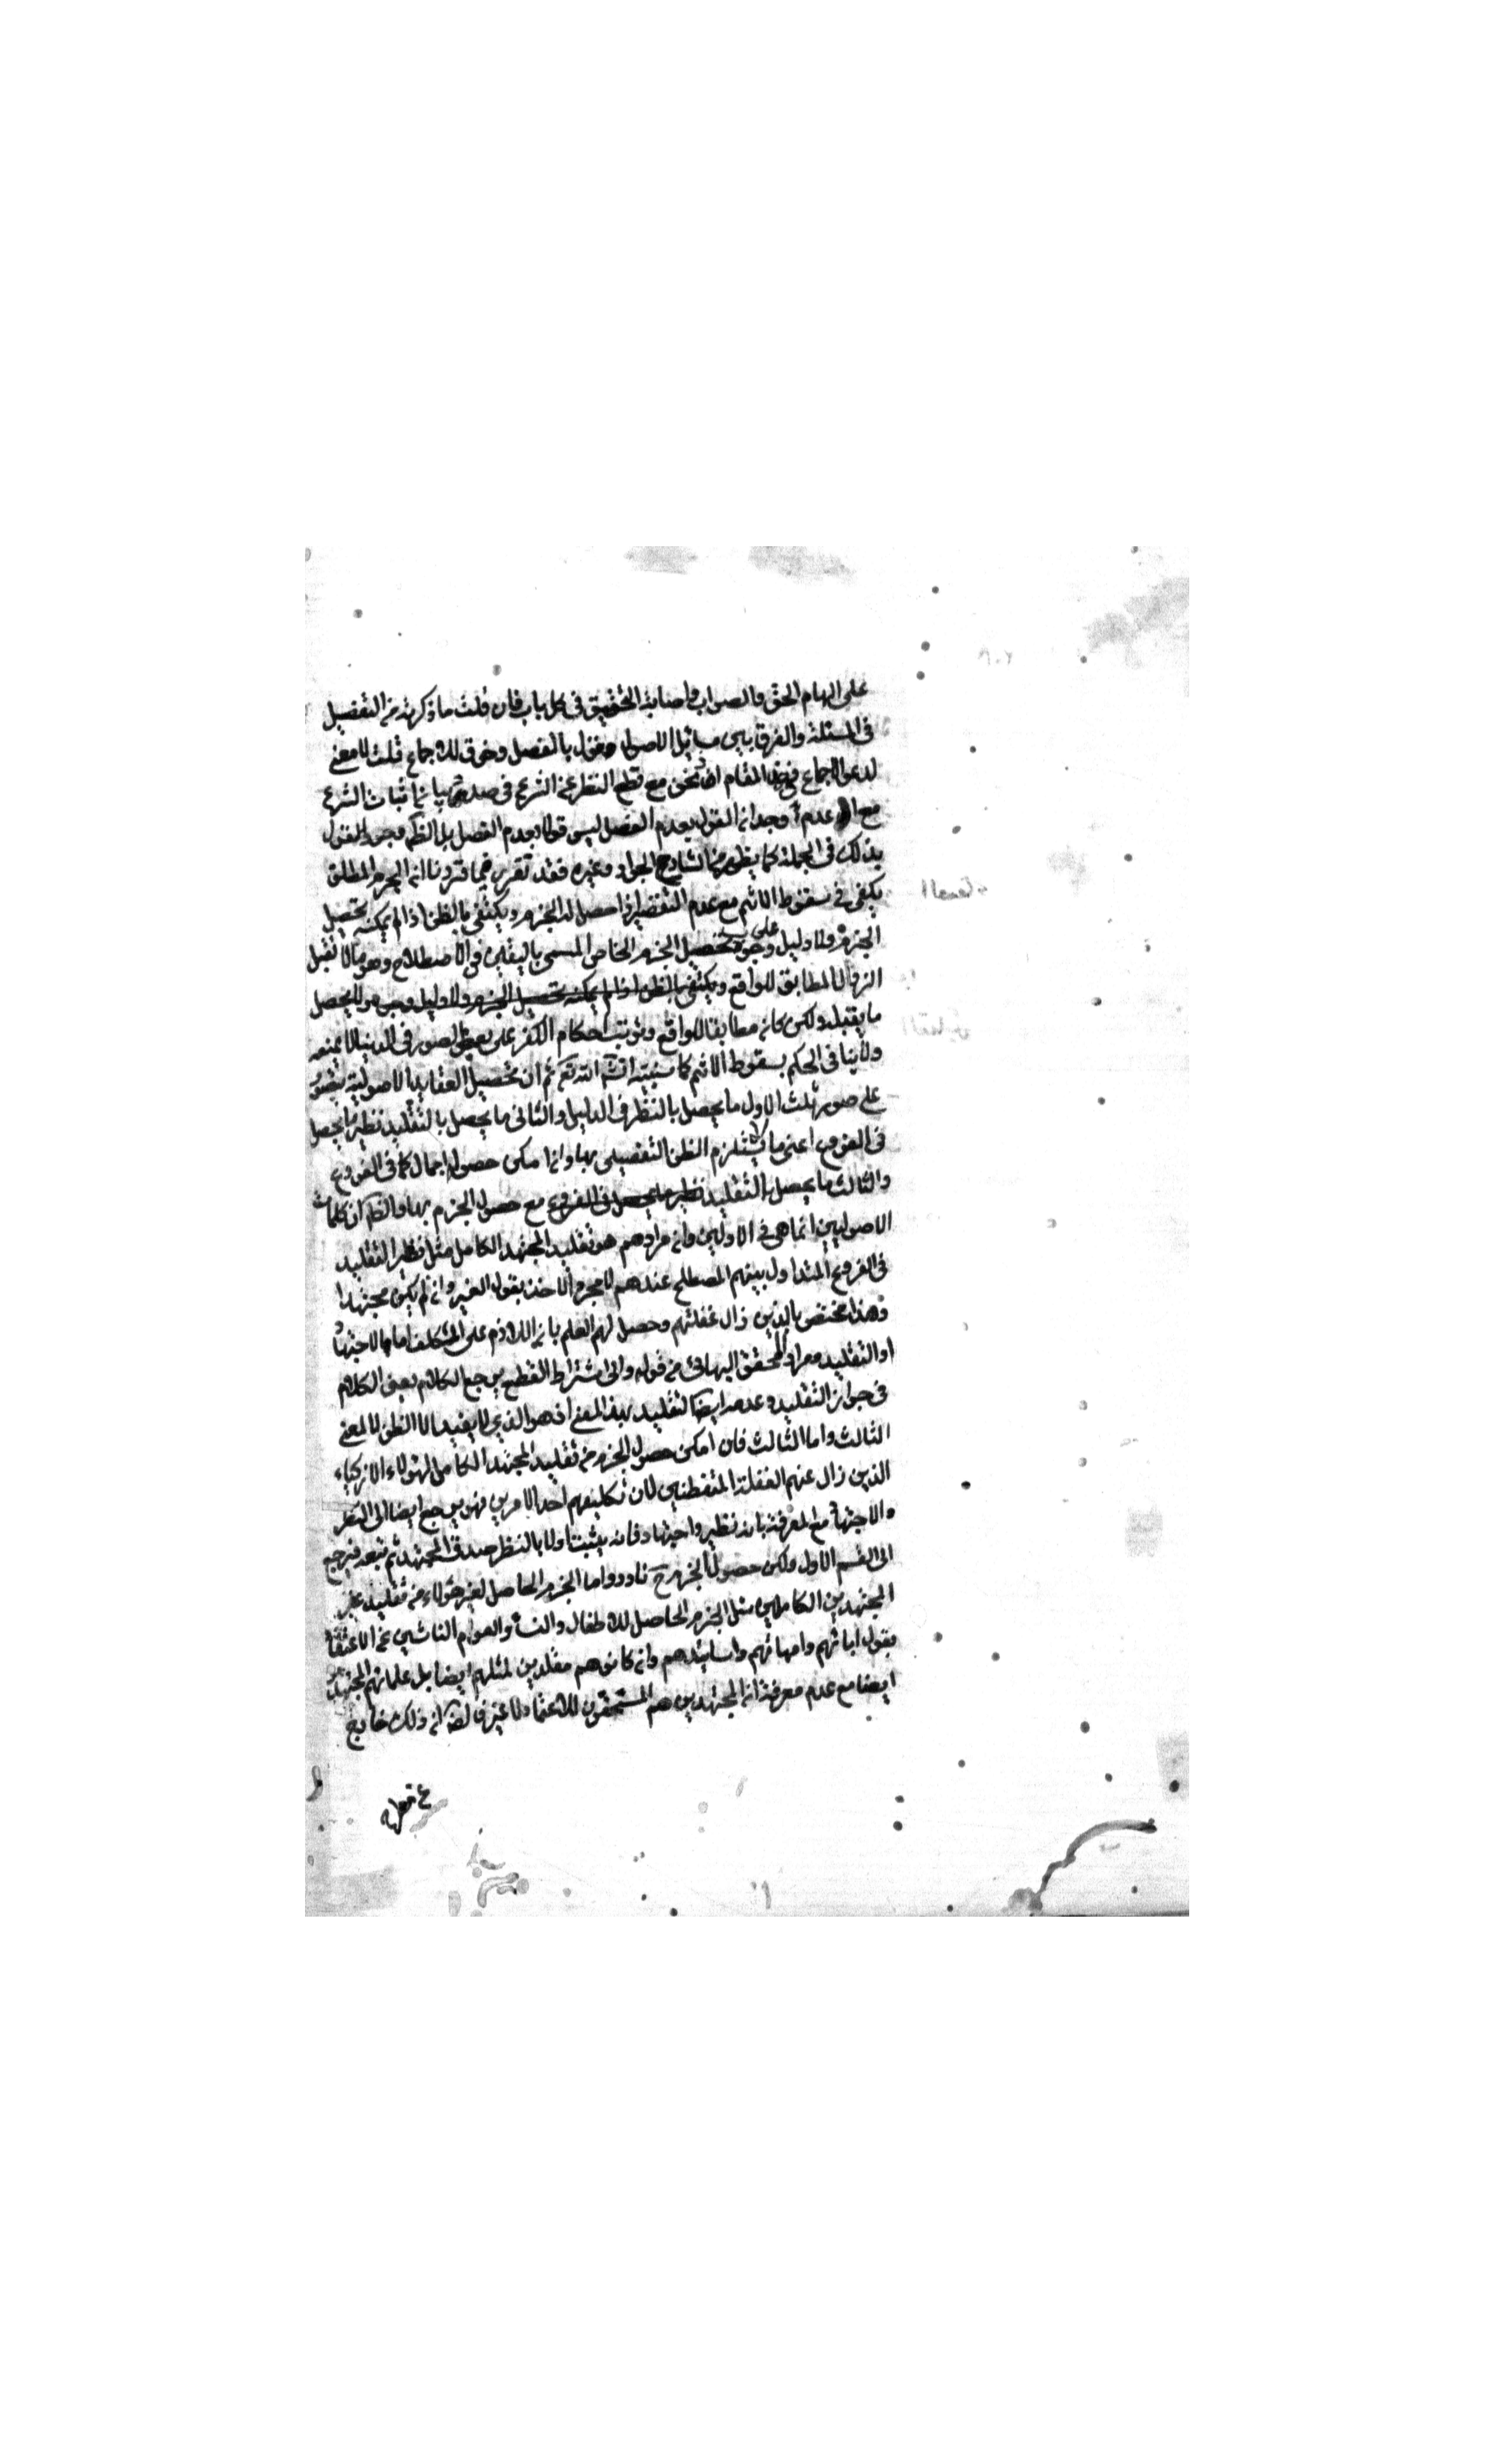 على الهام الحق والصواب واصابة التحقيق فى كل باب فان قلت ما ذكرته من التفصيل
فى المسئلة والفرق بين مسائل الاصول قول بالفصل وخرق للاجماع قلت لا معنى
لدعوى الاجماع فى هذا المقام اذ نحن مع قطع النظر عن الشرع فى صدد بيان اثبات الشرع
مع ان عدم وجدان القول بعدم الفصل ليس قولا بعدم الفصل بل الظ وجود القول
بذلك فى الجملة كما يظهر من الشارح الجواد وغيره فقد تقرر فيما قررنا ان الجزم المطلق
يكفى فى سقوط الاثم مع عدم التقصير اذا حصل له الجزم ويكتفى بالظن اذا لم يمكنه تحصيل
الجزم ولا دليل على وجوب تحصيل الجزم الخاص المسمى باليقين فى الاصطلاح وهو ما لا تقبل
الزوال المطابق للواقع ويكتفى بالظن اذا لم يمكنه تحصيل الجزم ولا دليل وجوب تحصيل
ما يقبله ولكن كان مطابقا للواقع وترتب احكام الكفر على بعض الصور فى الدنيا لا يمنعه
ولا ينافى الحكم بسقوط الاثم كما سنبينه انشاء الله تعم ثم ان تحصيل العقايد الاصولية يتصور
على صور ثلث الاول ما يحصل بالنظر فى الدليل والثانى ما يحصل بالتقليد نظير ما يحصل
فى الفروع اعنى ما لا يستلزم الظن التفصيلى بها وان امكن حصوله اجمالا كما فى الفروع
والثالث ما يحصل بالتقليد نظير ما يحصل فى الفروع مع حصول الجزم بها والظ ان كلمات
الاصوليين انما هى فى الاولين وان مرادهم هو تقليد المجتهد الكامل مثل نظير التقليد
فى الفروع المتداول بينهم المصطلح عندهم لا مجرد الاخذ بقول الغير وان لم يكن مجتهدا
وهذا مختص بالذين زال غفلتهم وحصل لهم العلم بان اللازم على المكلف اما الاجتهاد
او التقليد ومراد المحقق البهائى من قوله والى اشتراط القطع يرجع الكلام يعنى الكلام
فى جواز التقليد وعدمه ايضا التقليد بهذا المعنى اذ هو الذى لا يفيد الا الظن لا المعنى
الثالث واما الثالث فان امكن حصول الجزم من تقليد المجتهد الكامل لهؤلاء الازكياء
الذين زال عنهم الغفلة المتفطنين لان تكليفهم احد الامرين فهو يرجع ايضا الى النظر
والاجتهاد مع المعرفة بانه نظير واجتهاد فانه يثبت اولا بالنظر صدق المجتهد ثم يتبعه فيرجع
الى القسم الاول ولكن حصول الجزم ح نادر واما الجزم الحاصل لغير هؤلاء من تقليد غير
المجتهدين الكاملين مثل الجزم الحاصل للاطفال والنساء والعوام الناشى عن الاعتقاد
بقول ابائهم وامهاتهم واساتيدهم وان كانوا هم مقلدين لمثلهم ايضا بل علمائهم المجتهدين
ايضا مع عدم معرفة ان المجتهدين هم المستحقون للاعتماد لا غيرهم فالظ ان ذلك خارج